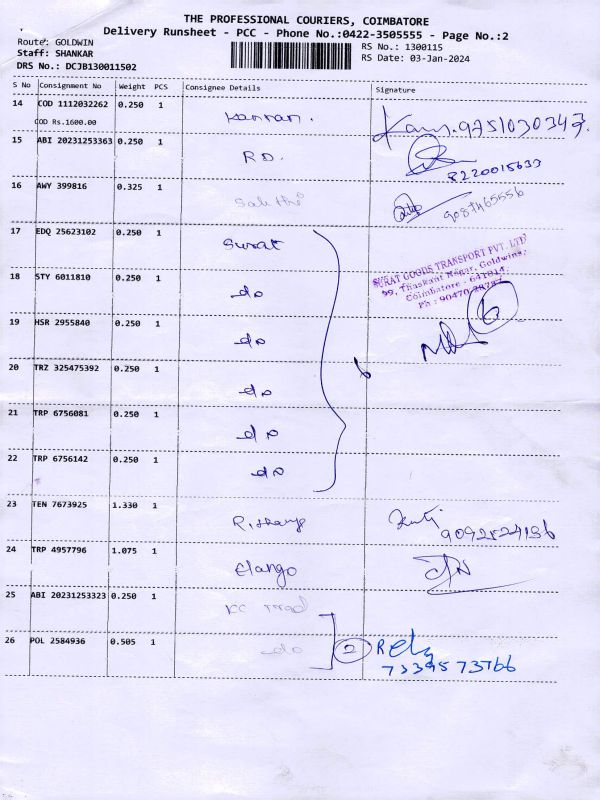 THE PROFESSIONAL COURIERS, COIMBATORE
Delivery Runsheet - PCC - Phone No.:0422-3505555 - Page No.:2
Route: GOLDWIN
Staff: SHANKAR
DRS No.: DCJB130011502
RS No.: 1300115
RS Date: 03-Jan-2024
S No Consignment No Weight PCS Consignee Details Signature
14 COD 1112032262 0.250 1 Kannan.
COD Rs.1600.00
15 ABI 20231253363 0.250 1 R.D. 8220015633
16 AWY 399816 0.325 1 Sakthi
17 EDQ 25623102 0.250 1 Surat
SURAT GOODS TRANSPORT PVT. LTD
99, Thaskant Nagar, Goldwins,
Coimbatore - 641014.
18 STY 6011810 0.250 1 do
6
19 HSR 2955840 0.250 1 do
20 TRZ 325475392 0.250 1 do
6
21 TRP 6756081 0.250 1 do
22 TRP 6756142 0.250 1 do
23 TEN 7673925 1.330 1
24 TRP 4957796 1.075 1 Elango
25 ABI 20231253323 0.250 1
26 POL 2584936 0.505 1 do 2